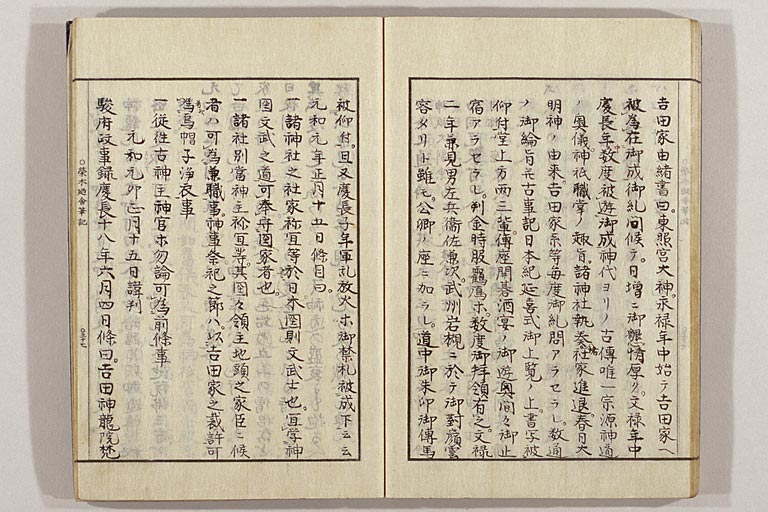 吉田家由緒書曰東照宮大神永禄年中始テ吉田家ヘ
被為在御成御糺問候テ日増ニ御懇情厚ク文禄年中
慶長年数度被遊御成神代ヨリノ古傳唯一宗源神道
ノ奥儀神祇職掌ノ趣旨諸神社執奏社家進退春日大
明神ノ由来吉田家系等毎度御糺問アラセラレ数通
ノ御綸旨并古事記日本紀延喜式御上覧ノ上書写被
仰付堂上方両三輩傳座開碁酒宴ノ御遊興間々御止
宿アラセラレ判金時服鶴鷹ホ数度御拝領有之文禄
二年兼見男左兵衛佐兼次武州岩槻ニ於テ御對顔雲
客タリト雖モ公卿ノ座ニ加ラシ道中御朱印御傳馬
被仰付且又慶長子年軍乱放火ホ御禁札被成下云云
元和元年正月十五日條目曰
一諸神社之社家祢宜等於日本国則文武士也宜学神
国文武之道可奉守国家者也
一諸社別當神主祢宜等其国々領主地頭之家臣ニ候
者ハ可為兼職事神事祭祀之節ハ以吉田家之裁許可
為烏帽子浄衣事
一従往古神主神官ホ勿論可為前條事
元和元卯正月十五日謹判
駿府政事録慶長十八年六月四日條曰吉田神龍院梵
○榮木廼舎筆記